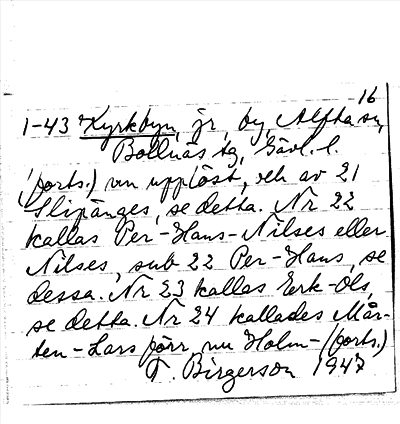 16
1-43 Kyrkbyn, jr, by, Alfta sn,
Bollnäs tg, Gävl. l.
(forts.) nu upplöst, del av 21
Slipänges, se detta. Nr 22
kallas Per-Hans-Nilses eller
Nilses, sub 22 Per-Hans, se
dessa. Nr 23 kallas Erk-Ols,
se detta. Nr 24 kallades Mår-
ten-Lars förr, nu Holm- (forts.)
T. Birgerson 1947